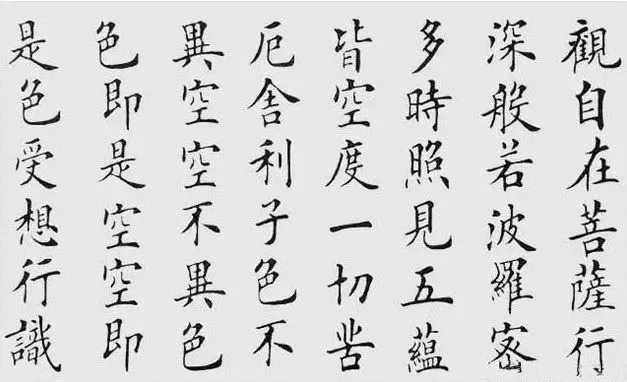 觀自在菩薩行
深般若波羅密
多時照見五蘊
皆空度一切苦
厄舍利子色不
異空空不異色
色即是空空即
是色受想行識